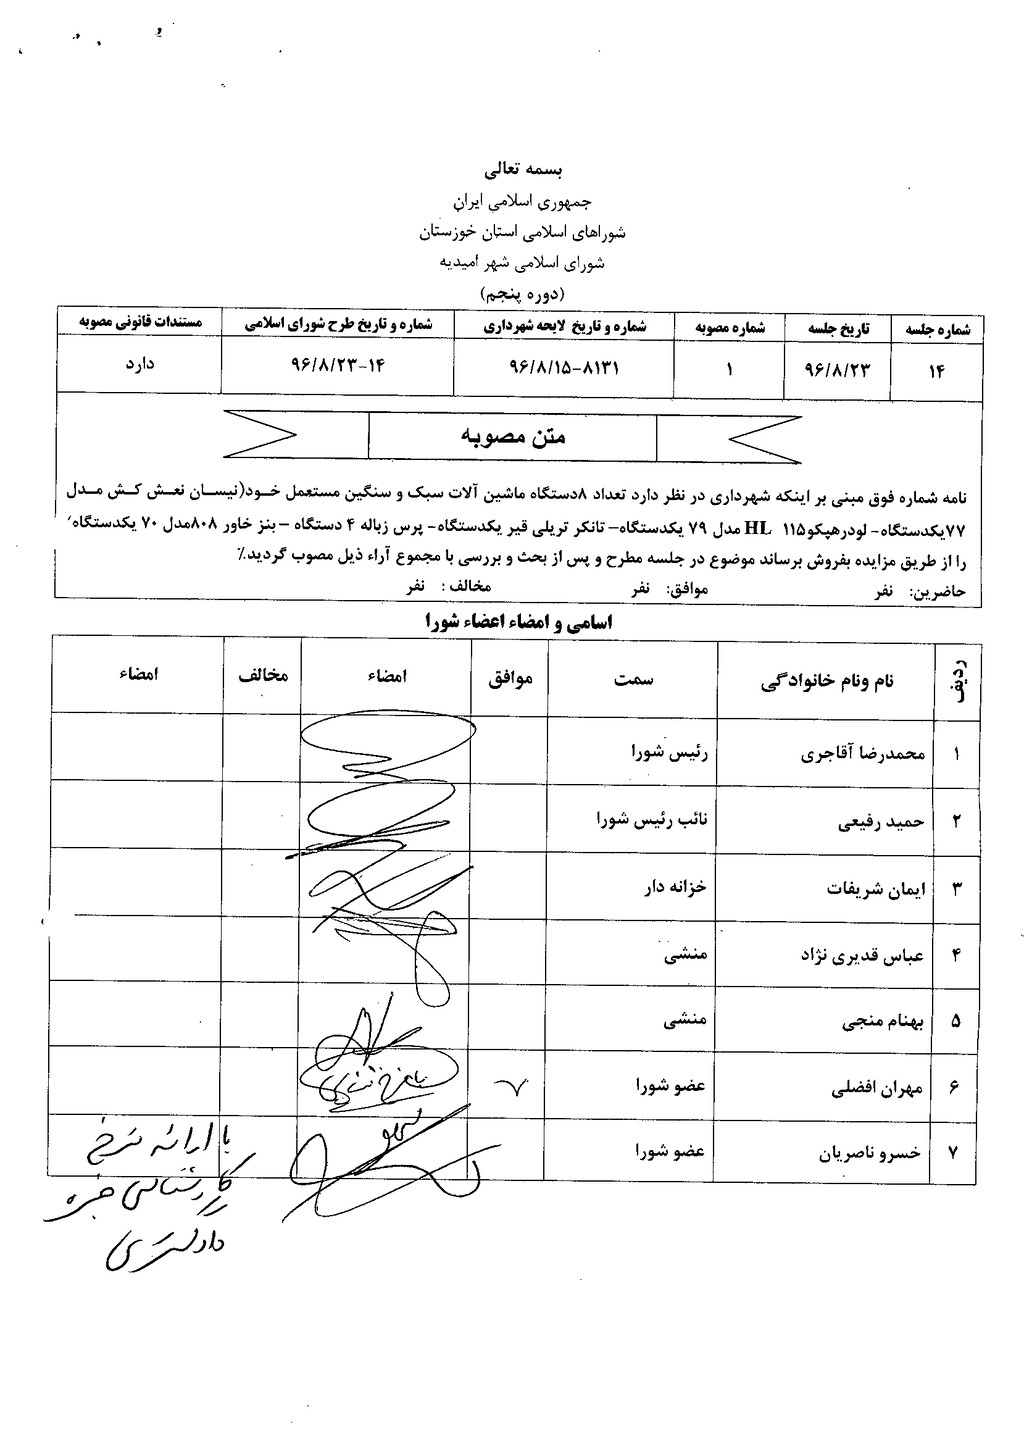 بسمه تعالی
جمهوری اسلامی ایران
شوراهای اسلامی استان خوزستان
شورای اسلامی شهر امیدیه
(دوره پنجم)
شماره جلسه تاریخ جلسه شماره مصوبه شماره و تاریخ لایحه شهرداری شماره و تاریخ طرح شورای اسلامی مستندات قانونی مصوبه
۱۴ ۹۶/۸/۲۳ ۱ ۹۶/۸/۱۵-۸۱۳۱ ۹۶/۸/۲۳-۱۴ دارد
متن مصوبه
نامه شماره فوق مبنی بر اینکه شهرداری در نظر دارد تعداد ۸دستگاه ماشین آلات سبک و سنگین مستعمل خود(نیسان نعش کش مدل
۷۷یکدستگاه- لودرهپکو۱۱۵ HL مدل ۷۹ یکدستگاه- تانکر تریلی قیر یکدستگاه- پرس زباله ۴ دستگاه -بنز خاور ۸۰۸مدل ۷۰ یکدستگاه٬
را از طریق مزایده بفروش برساند موضوع در جلسه مطرح و پس از بحث و بررسی با مجموع آراء ذیل مصوب گردید.٪
حاضرین: نفر موافق: نفر مخالف : نفر
اسامی و امضاء اعضاء شورا
ردیف نام ونام خانوادگی سمت موافق امضاء مخالف امضاء
۱ محمدرضا آقاجری رئیس شورا
۲ حمید رفیعی نائب رئیس شورا
۳ ایمان شریفات خزانه دار
۴ عباس قدیری نژاد منشی
۵ بهنام منجی منشی
۶ مهران افضلی عضو شورا
۷ خسرو ناصریان عضو شورا
با ارائه نرخ
کارشناس خبره
دادگستری